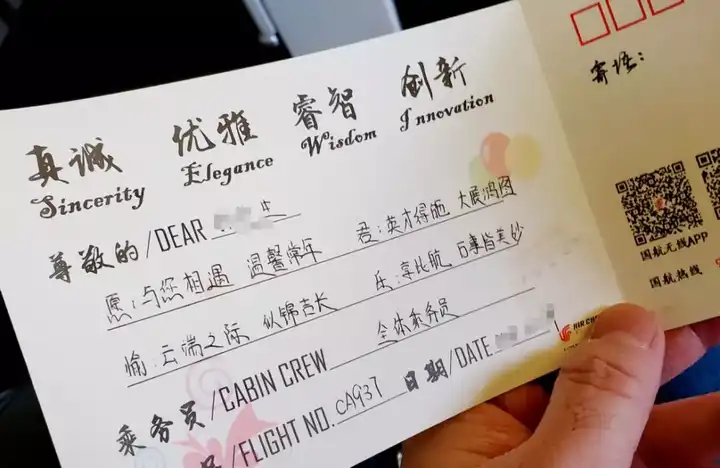 真诚 优雅 睿智 创新
Sincerity Elegance Wisdom Innovation
尊敬的/DEAR 生
愿:与您相遇 温馨常年 君:英才得施 大展鸿图
愉:云端之际 似锦吉长 乐:享此航 百事皆美妙
乘务员/CABIN CREW 全体乘务员
号/FLIGHT NO. CA937 日期/DATE
AIR
寄语:
国航无线APP
国航热线